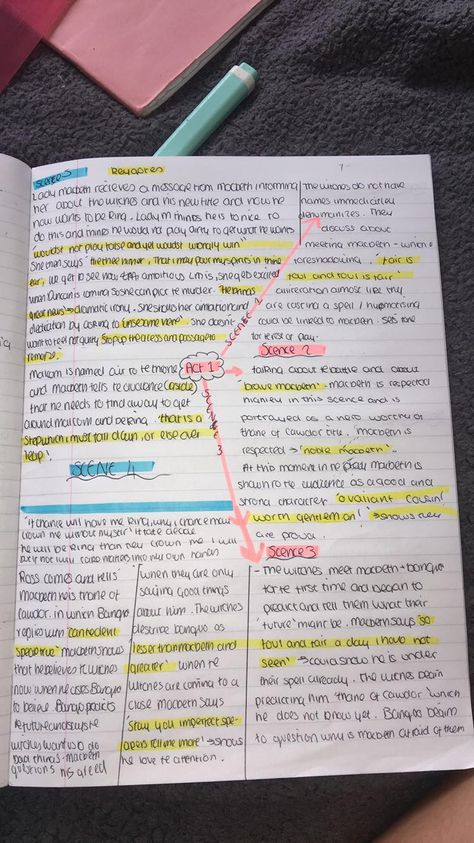 Scene 5 Key quotes
Lady macbeth recieves a message from macbeth informing
her about the witches and his new title and how he
now wants to be king. Lady m thinks he is to nice to
do this and thinks he will not play dirty to get what he wants
wouldst not play false and yet wouldst wrongly win"
She then says "hie thee hither, that I may pour my spirits in thine
ear, we get to see how ambitious LM is, she gets excited
when Duncan is coming so she can plot the murder. The
great news → dramatic irony. She shows her ambition and
dedication by asking to unsex me here' She doesn't
want to feel not guilty stop up the access and passage to
remorse.
Malcom is named air to the throne
and macbeth tells the audience (aside)
that he needs to find a way to get
around malcom and be king. that is a
step which I must fall down, or else over
leap'.
SCENE 4
'If chance will have me king, why, chance may
crown me without my stir'
he will be king than crown me I will
not take matters into my own hands
Ross comes and tells
macbeth he is thane of
cawdor, in which Banquo
replies with can the devil
speak true' macbeth shows
that he believes the witches
now when he asks Banquo
witches want us to do
bad things. macbeth
questions his greed
when they are only
saying good things
about him. The witches
describe banquo as
lesser than macbeth and
greater' when the
witches are coming to a
close macbeth says
'stay you imperfect spe-
akers tell me more' → shows
he love the attention.
The witches do not have
names immedicitley
dehumanizes. They
discuss about
meeting macbeth - when
foreshadowing. 'fair is
foul and foul is fair'
alliteration almost like they
are casting a spell / hypnotising
could be linked to macbeth. sets tone
for rest of play.
SCENE 2
Act 1
SCENE 3
Scence 2
talking about the battle and about
'brave macbeth' macbeth is respected
highley in this scence and is
portrayed as a hero worthy of
thane of cawdor title. macbeth is
respected → 'noble macbeth'.
At this moment in the play macbeth is
shown to the audience as a good and
strong character 'o valiant cousin!
worth gentleman!' → shows they
are proud.
Scence 3
- The witches meet macbeth + banquo
for the first time and began to
predict and tell them what their
'future' might be. macbeth says 'so
foul and fair a day I have not
seen' → could show he is under
their spell already. The witches begin
predicting him 'thane of cawdor' which
he does not know yet. Banquo begin
to question why is macbeth afraid of them